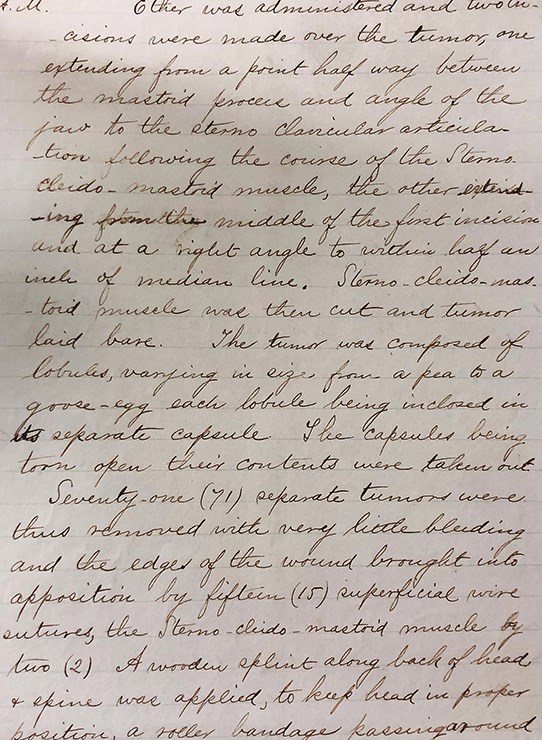 A.M. Ether was administered and two in-
-cisions were made over the tumor, one
extending from a point half way between
the mastoid process and angle of the
jaw to the sterno clavicular articula-
-tion following the course of the Sterno
cleido-mastoid muscle, the other extend-
-ing from the middle of the first incision
and at a right angle to within half an
inch of median line. Sterno-cleido-mas-
-toid muscle was then cut and tumor
laid bare. The tumor was composed of
lobules, varying in size from a pea to a
goose-egg each lobule being inclosed in
its separate capsule. The capsules being
torn open their contents were taken out
Seventy-one (71) separate tumors were
thus removed with very little bleeding
and the edges of the wound brought into
apposition by fifteen (15) superficial wire
sutures, the Sterno-cleido-mastoid muscle by
two (2) A wooden splint along back of head
& spine was applied, to keep head in proper
position, a roller bandage passing around